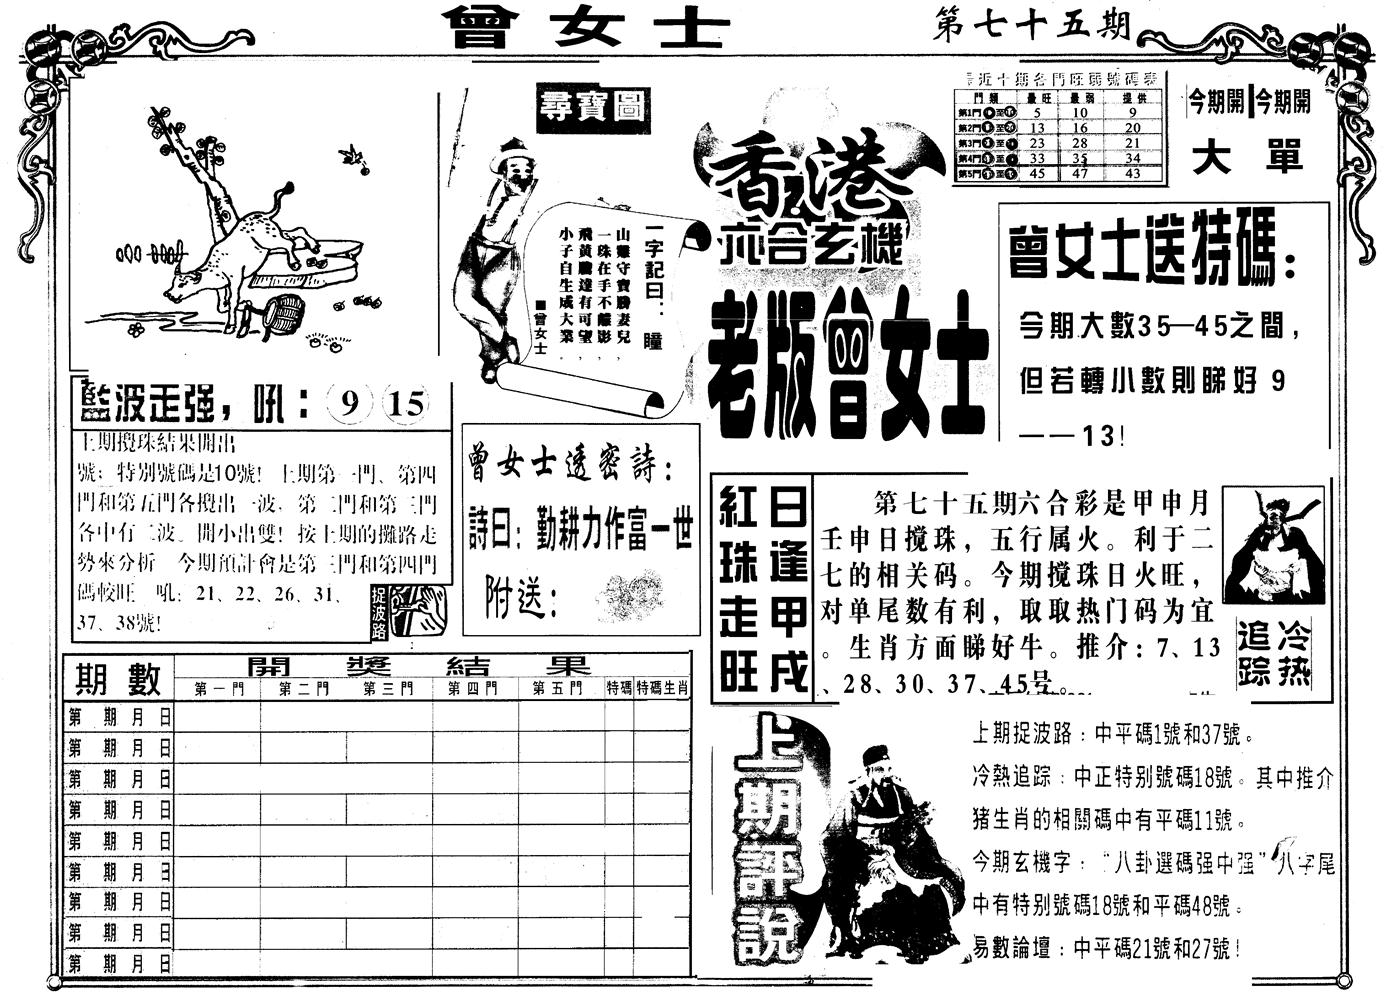 曾女士
第七十五期
尋寶圖
一字記曰：瞳
山雞守寶勝妻兒
一珠在手不離影，
飛黃騰達有可望
小子自生成大業．
■曾女士
香港
六合玄機
老版曾女士
近十期各門旺弱號碼表
門類 最旺 最弱 提供
第1門 至 5 10 9
第2門 至 13 16 20
第3門 至 23 28 21
第4門 至 33 35 34
第5門 至 45 47 43
今期開 今期開
大 單
曾女士送特碼：
今期大數35—45之間，
但若轉小數則睇好 9
——13！
藍波走强，吼：9 15
上期攪珠結果開出
號：特别號碼是10號！上期第一門、第四
門和第五門各攪出一波，第二門和第三門
各中有二波。開小出雙！按上期的攤路走
勢來分析 今期預計會是第三門和第四門
碼較旺 吼：21、22、26、31、
37、38號！
捉波路
曾女士透密詩：
詩曰：勤耕力作富一世
附送：
紅珠走旺
日逢甲戌
第七十五期六合彩是甲申月
壬申日搅珠，五行属火。利于二
七的相关码。今期搅珠日火旺，
对单尾数有利，取取热门码为宜
。生肖方面睇好牛。推介：7、13
、28、30、37、45号。
冷热
追踪
期數 開獎結果
第一門 第二門 第三門 第四門 第五門 特碼 特碼生肖
第 期 月 日
第 期 月 日
第 期 月 日
第 期 月 日
第 期 月 日
第 期 月 日
第 期 月 日
第 期 月 日
第 期 月 日
上期評說
上期捉波路：中平碼1號和37號。
冷熱追踪：中正特别號碼18號。其中推介
猪生肖的相關碼中有平碼11號。
今期玄機字：“八卦選碼强中强”八字尾
中有特别號碼18號和平碼48號。
易數論壇：中平碼21號和27號！